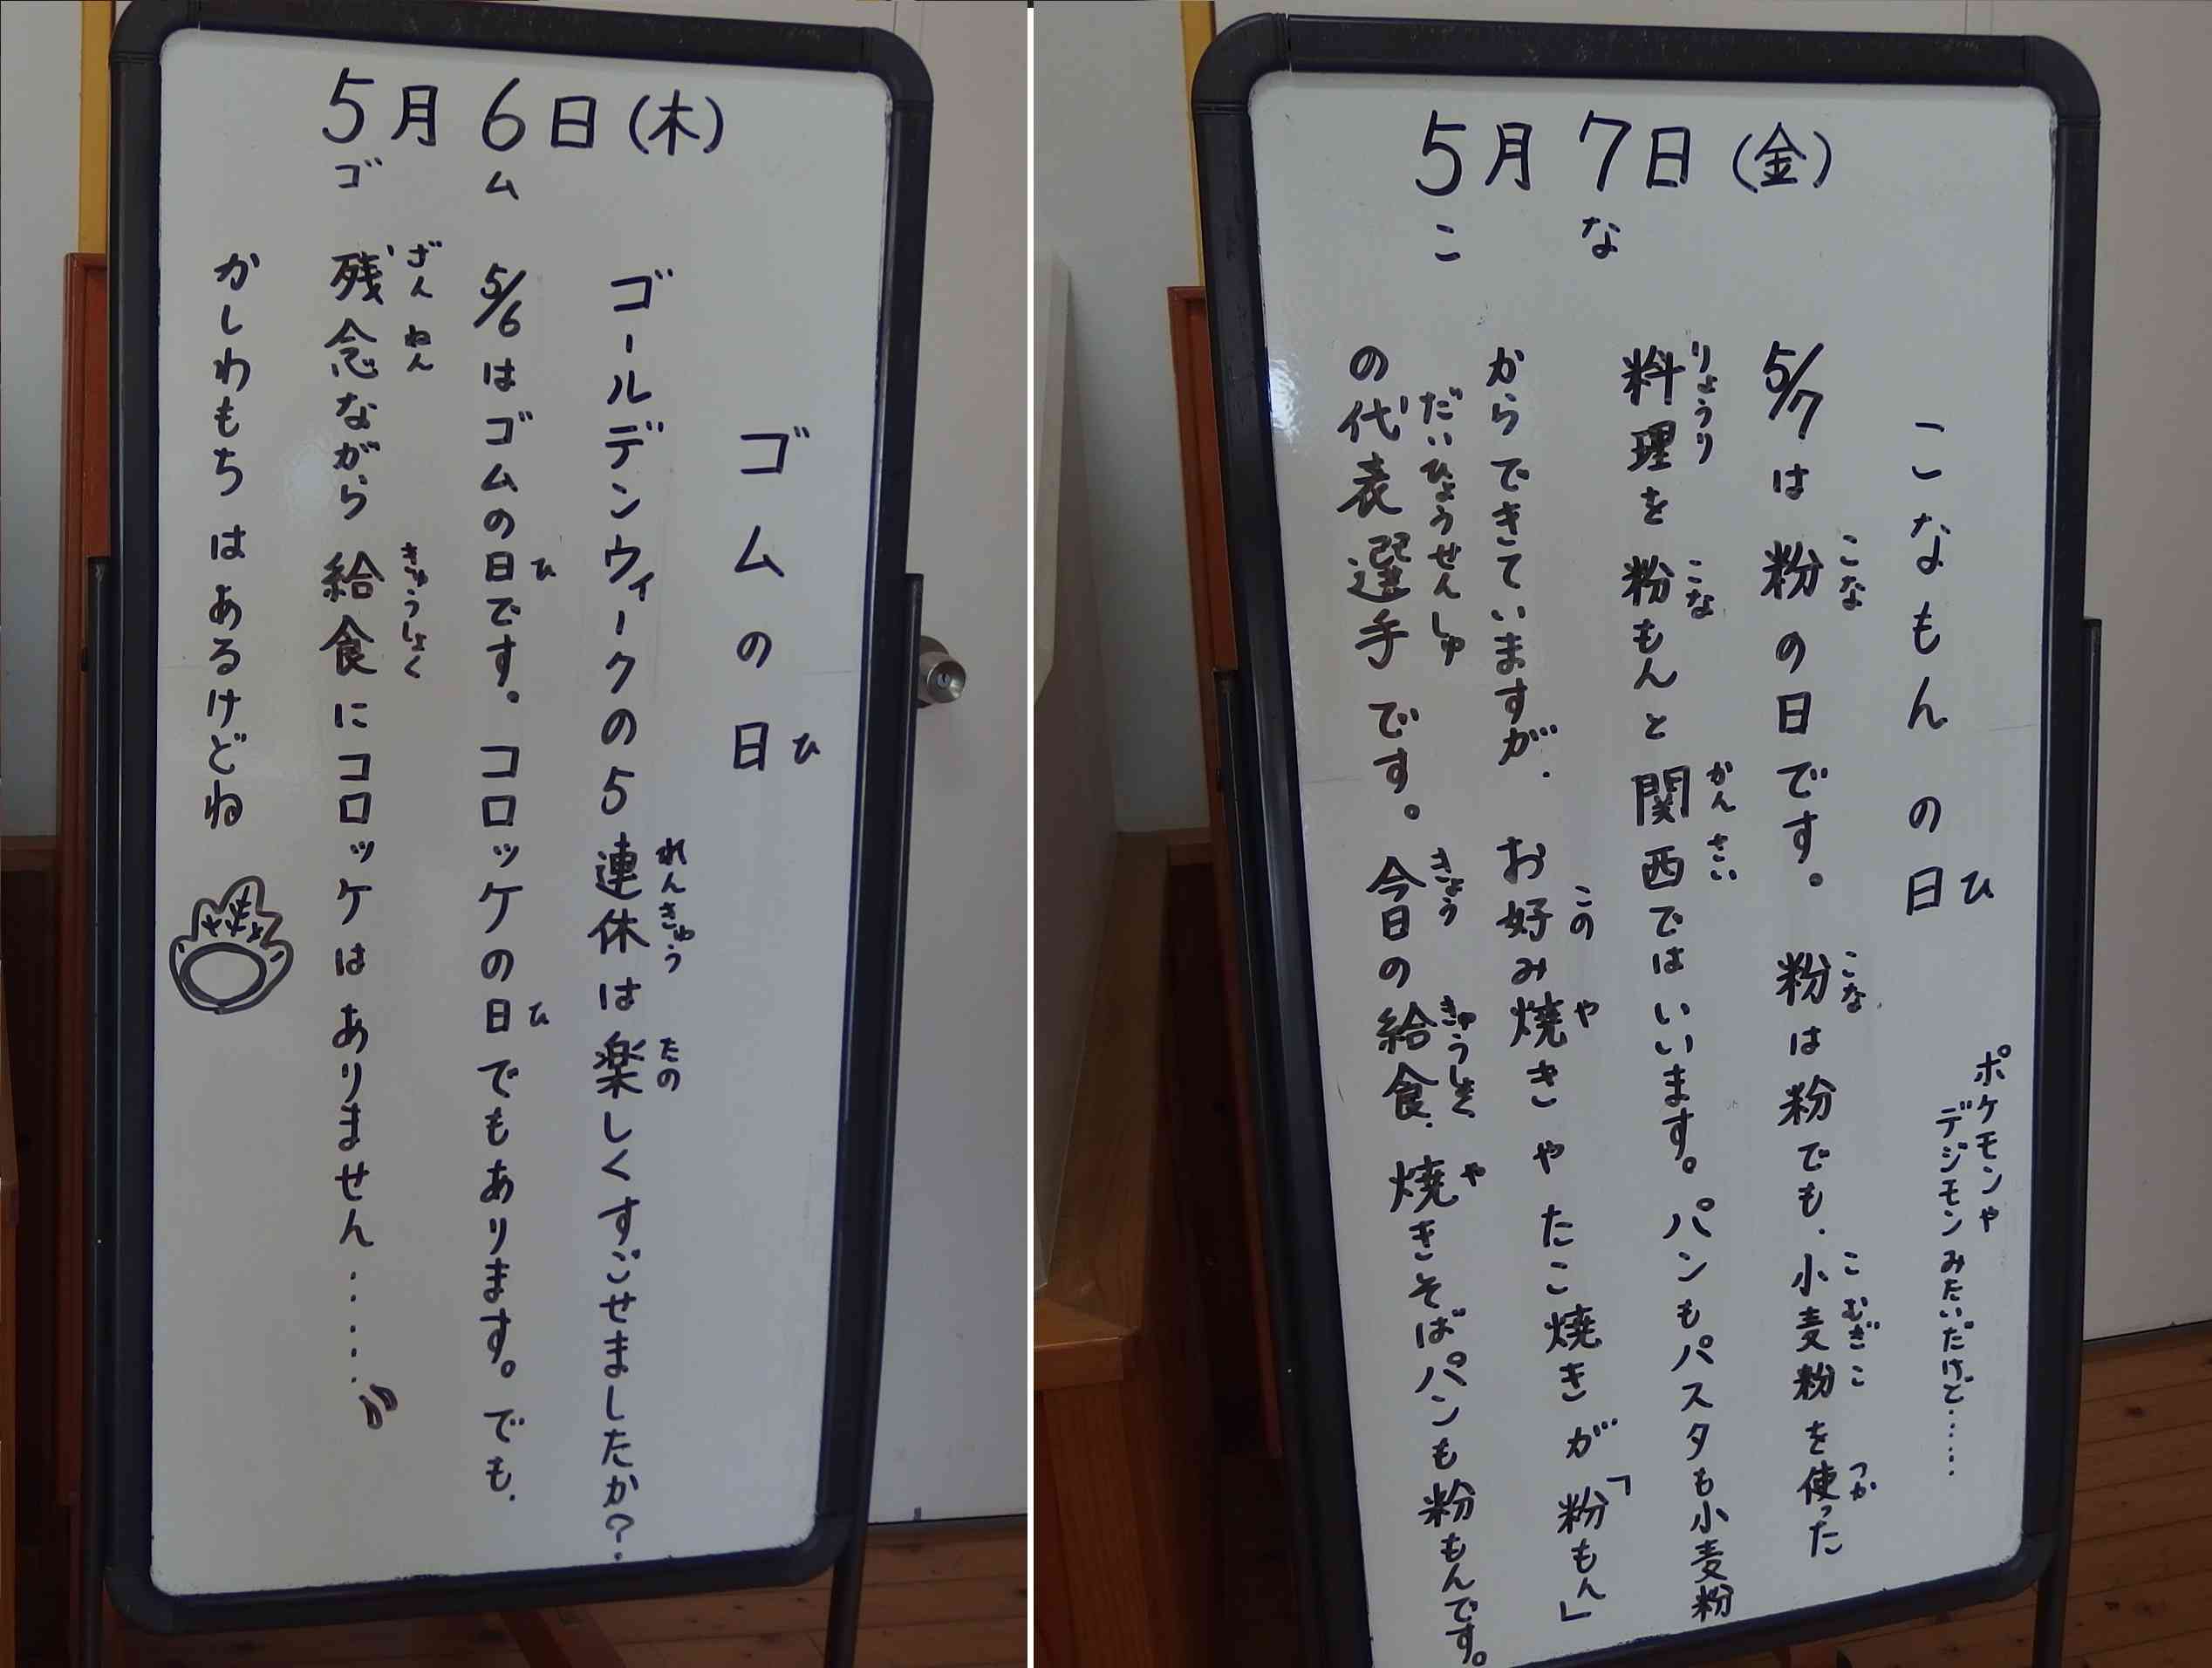 5月6日(木)
ゴ ム
ゴムの日
ひ
ゴールデンウィークの5連休は楽しくすごせましたか?
れんきゅう たの
5/6はゴムの日です。コロッケの日でもあります。でも、
ひ ひ
残念ながら給食にコロッケはありません……
ざんねん きゅうしょく
かしわもちはあるけどね
5月7日(金)
こ な
こなもんの日
ひ
ポケモンや
デジモンみたいだけど……
5/7は粉の日です。粉は粉でも、小麦粉を使った
こな こな こむぎこ つか
料理を粉もんと関西ではいいます。パンもパスタも小麦粉
りょうり こな かんさい
からできていますが、お好み焼きやたこ焼きが「粉もん」
この や
の代表選手です。今日の給食、焼きそばパンも粉もんです。
だいひょうせんしゅ きょう きゅうしょく や